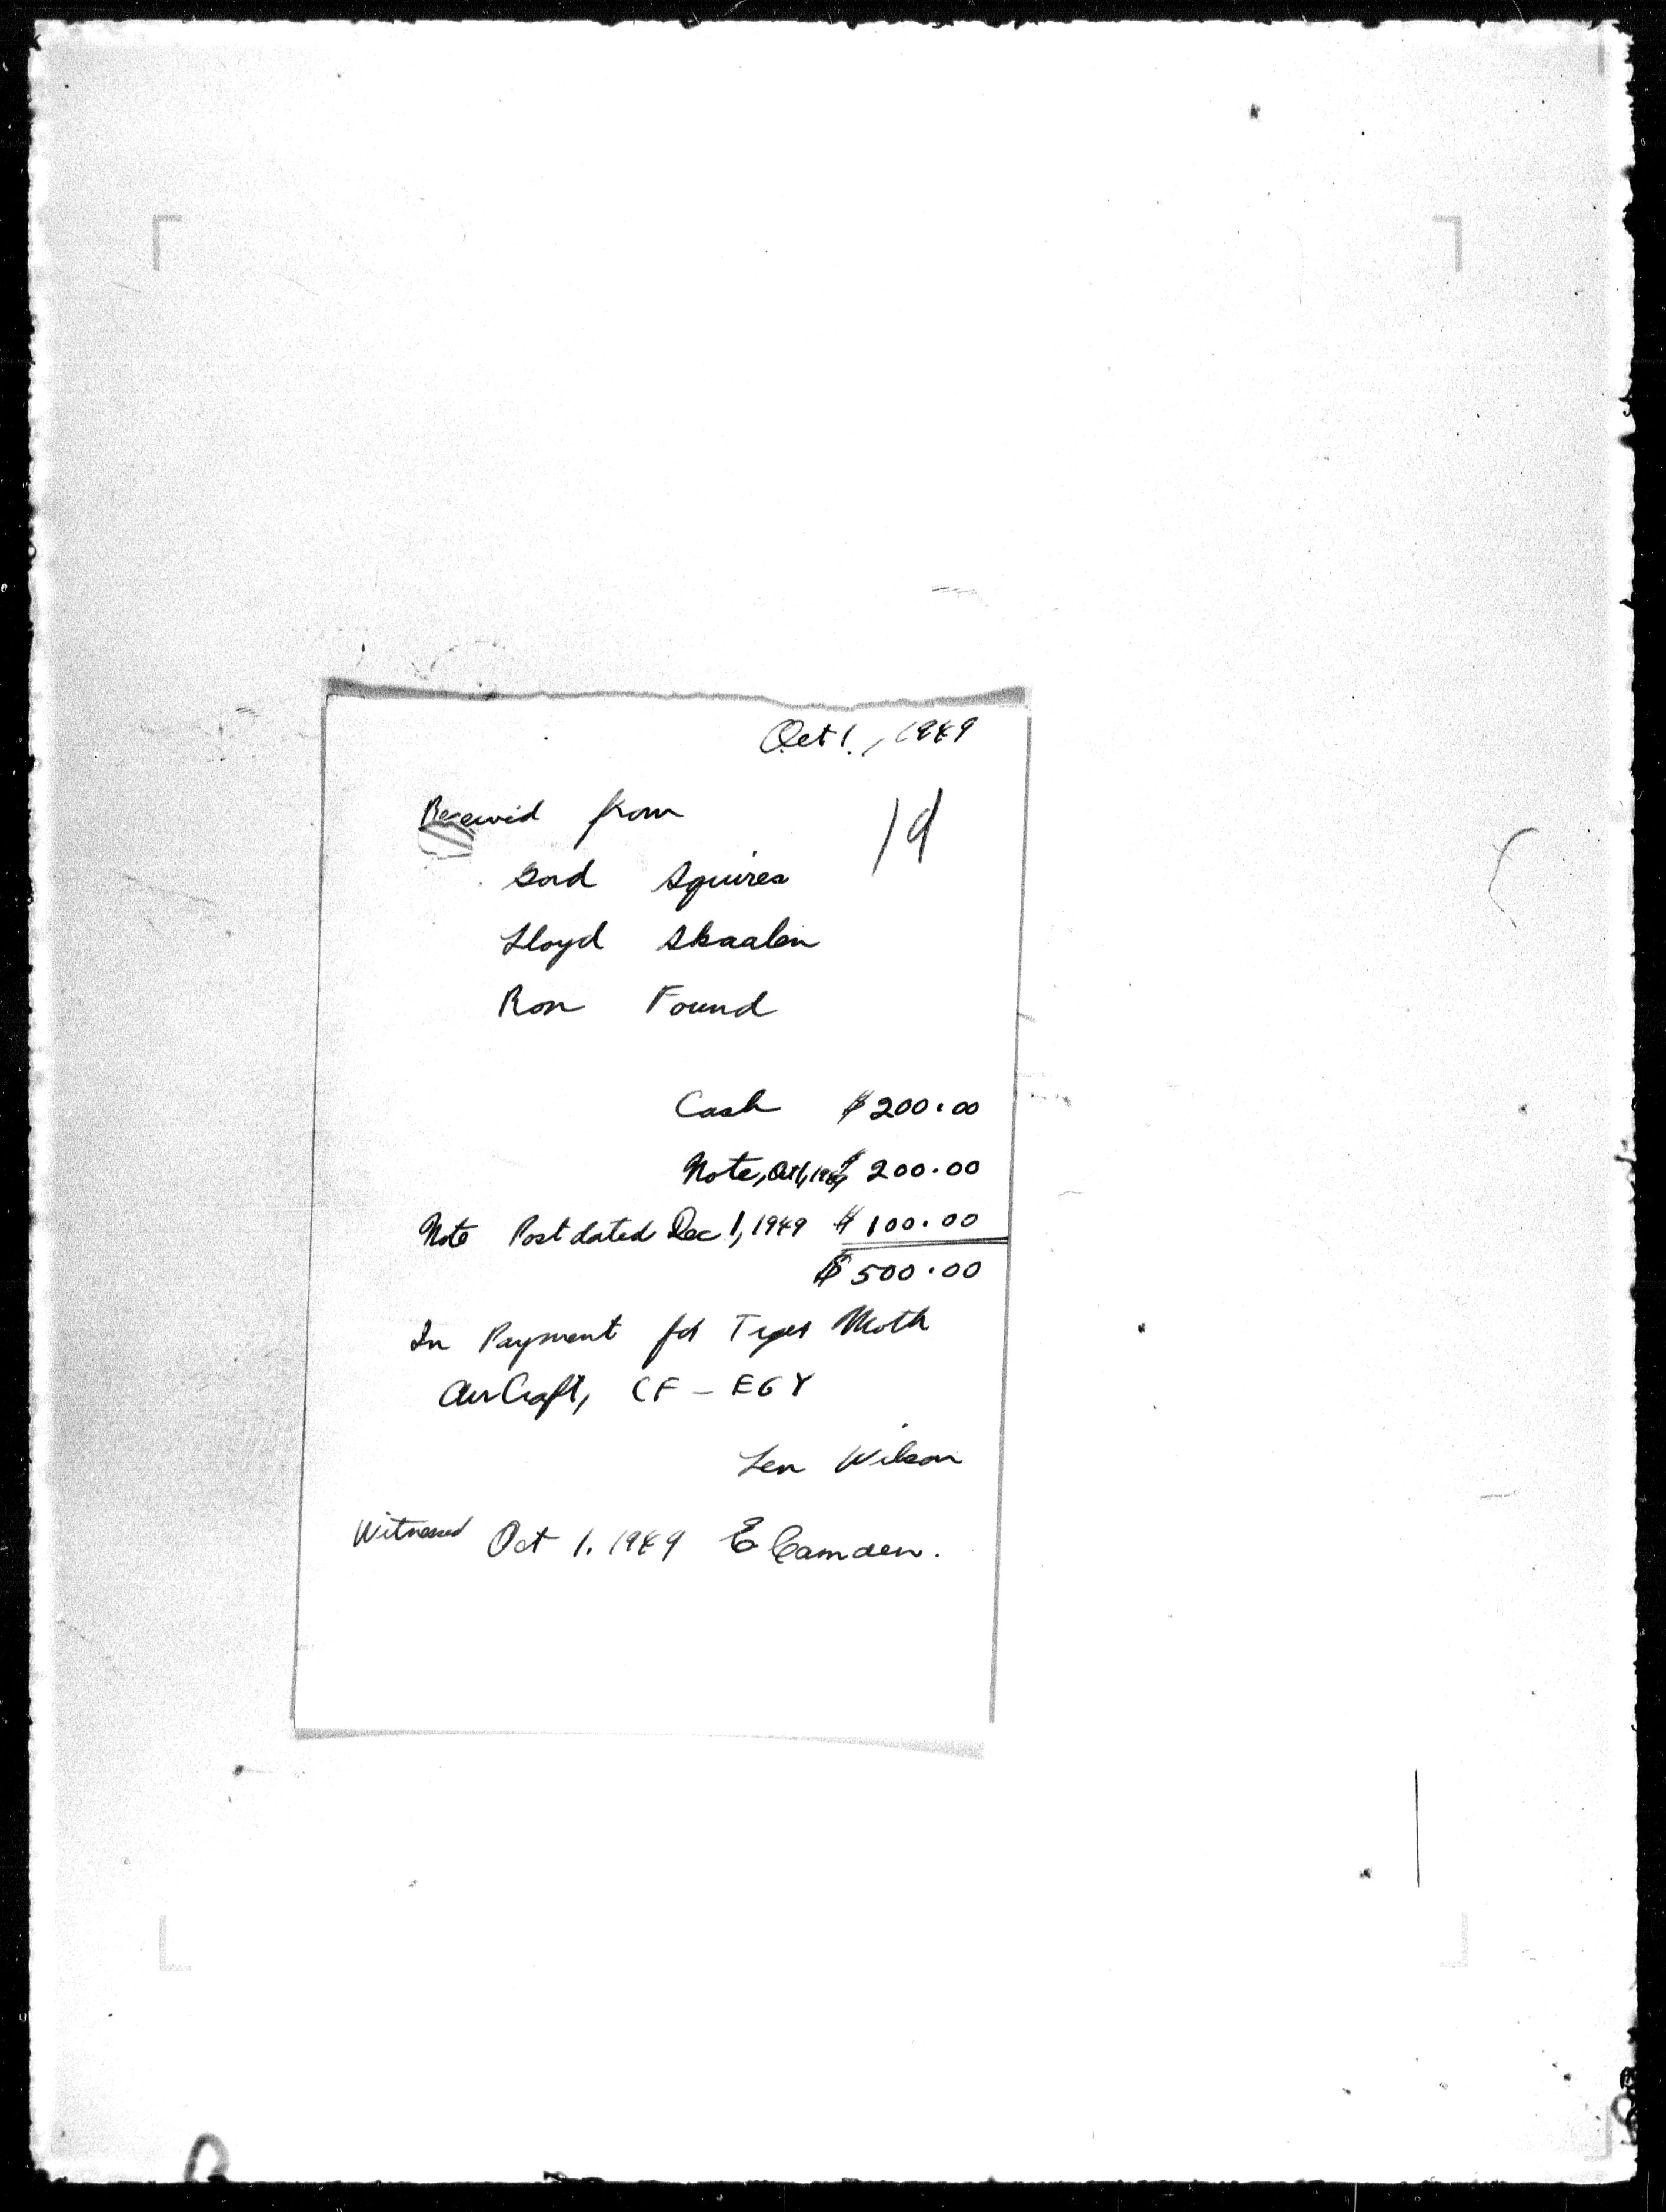 Oct 1, 1949
Received from
19
Gord Squires
Lloyd Skaalen
Ron Found
Cash $200.00
Note, Oct 1, 1949 $200.00
Note Postdated Dec 1, 1949 $100.00
$500.00
In Payment for Tiger Moth
AirCraft, CF - EGY
Len Wilson
Witnessed Oct 1. 1949 E Camden.